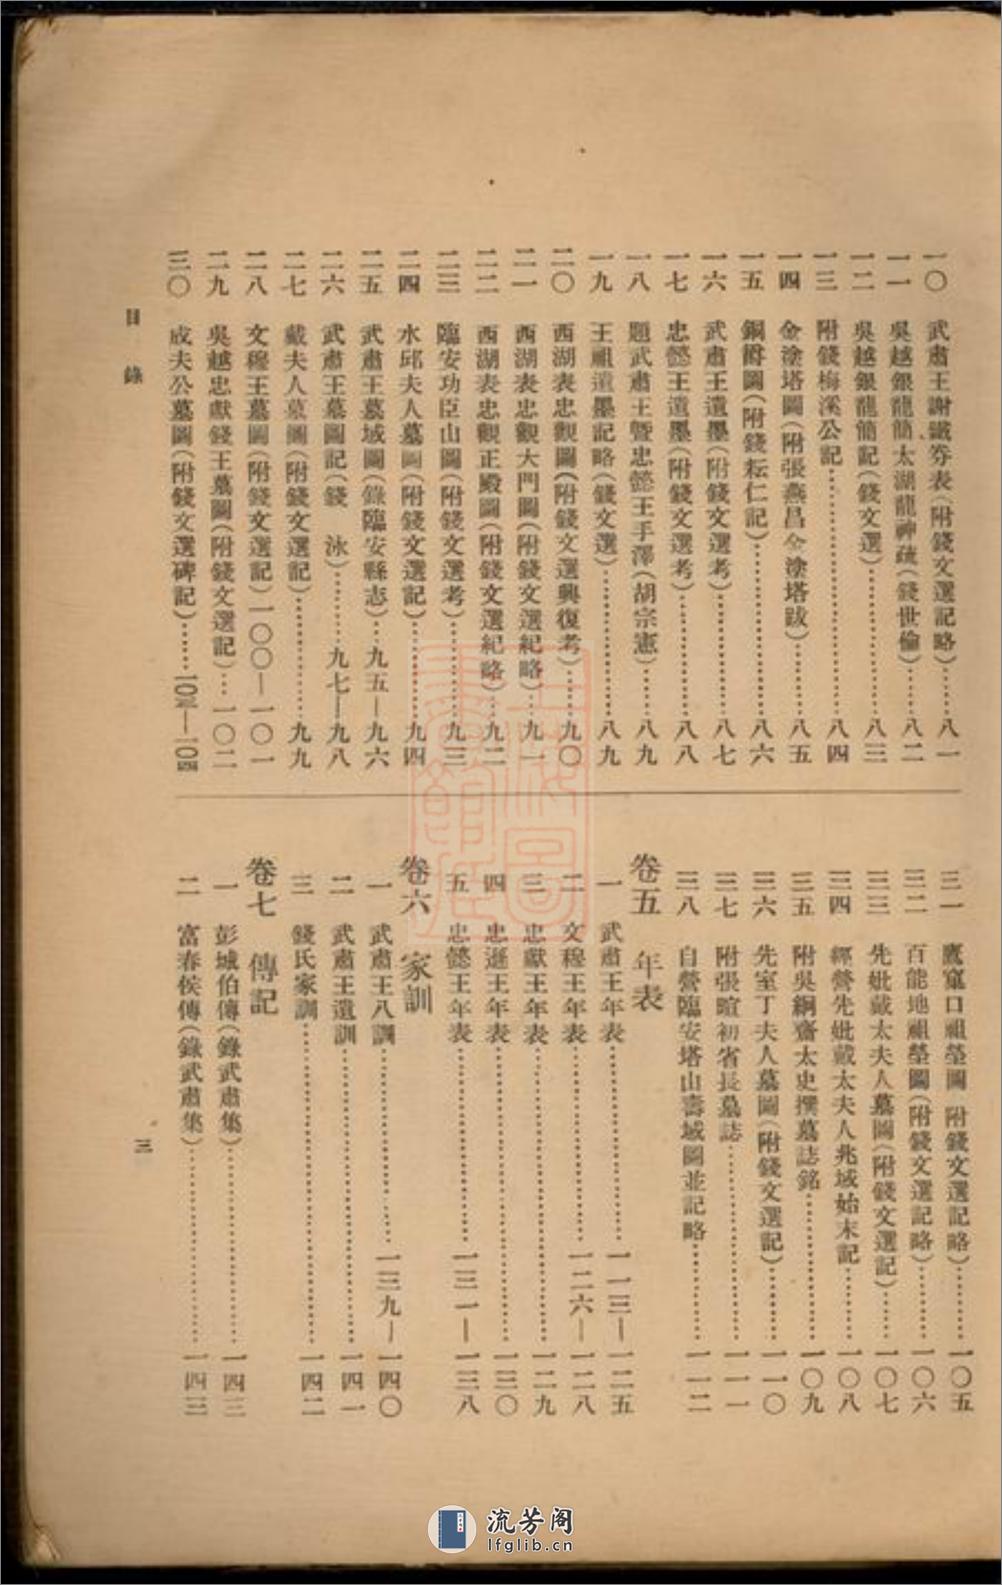 一〇　武肅王謝鐵券表(附錢文選記略)……八一
一一　吳越銀龍簡太湖龍神疏(錢世倫)……八二
一二　吳越銀龍簡記(錢文選)……八三
一三　附錢梅溪公記……八四
一四　金塗塔圖(附張燕昌金塗塔跋)……八五
一五　銅罇圖(附錢耘仁記)……八六
一六　武肅王遺墨(附錢文選考)……八七
一七　忠懿王遺墨(附錢文選考)……八八
一八　題武肅王暨忠懿王手澤(胡宗憲)……八九
一九　王祖遺墨記略(錢文選)……八九
二〇　西湖表忠觀圖(附錢文選興復考)……九〇
二一　西湖表忠觀大門圖(附錢文選紀略)……九一
二二　西湖表忠觀正殿圖(附錢文選紀略)……九二
二三　臨安功臣山圖(附錢文選考)……九三
二四　水邱夫人墓圖(附錢文選記)……九四
二五　武肅王墓域圖(錄臨安縣志)……九五—九六
二六　武肅王墓圖記(錢　泳)……九七—九八
二七　戴夫人墓圖(附錢文選記)……九九
二八　文穆王墓圖(附錢文選記)一〇〇—一〇一
二九　吳越忠獻錢王墓圖(附錢文選記)…一〇二
三〇　成夫公墓圖(附錢文選碑記)……一〇三—一〇四
三一　鷹窠口祖塋圖(附錢文選記略)……一〇五
三二　百能地祖塋圖(附錢文選記略)……一〇六
三三　先妣戴太夫人墓圖(附錢文選記)……一〇七
三四　經營先妣戴太夫人兆域始末記……一〇八
三五　附吳絅齋太史撰墓誌銘……一〇九
三六　先室丁夫人墓圖(附錢文選記)……一一〇
三七　附張暄初省長墓誌……一一一
三八　自營臨安塔山壽域圖並記略……一一二
卷五　年表
一　武肅王年表……一一三—一二五
二　文穆王年表……一二六—一二八
三　忠獻王年表……一二九
四　忠遜王年表……一三〇
五　忠懿王年表……一三一—一三八
卷六　家訓
一　武肅王八訓……一三九—一四〇
二　武肅王遺訓……一四一
三　錢氏家訓……一四二
卷七　傳記
一　彭城伯傳(錄武肅集)……一四三
二　富春侯傳(錄武肅集)……一四三
目錄
三
流芳阁
lfglib.cn